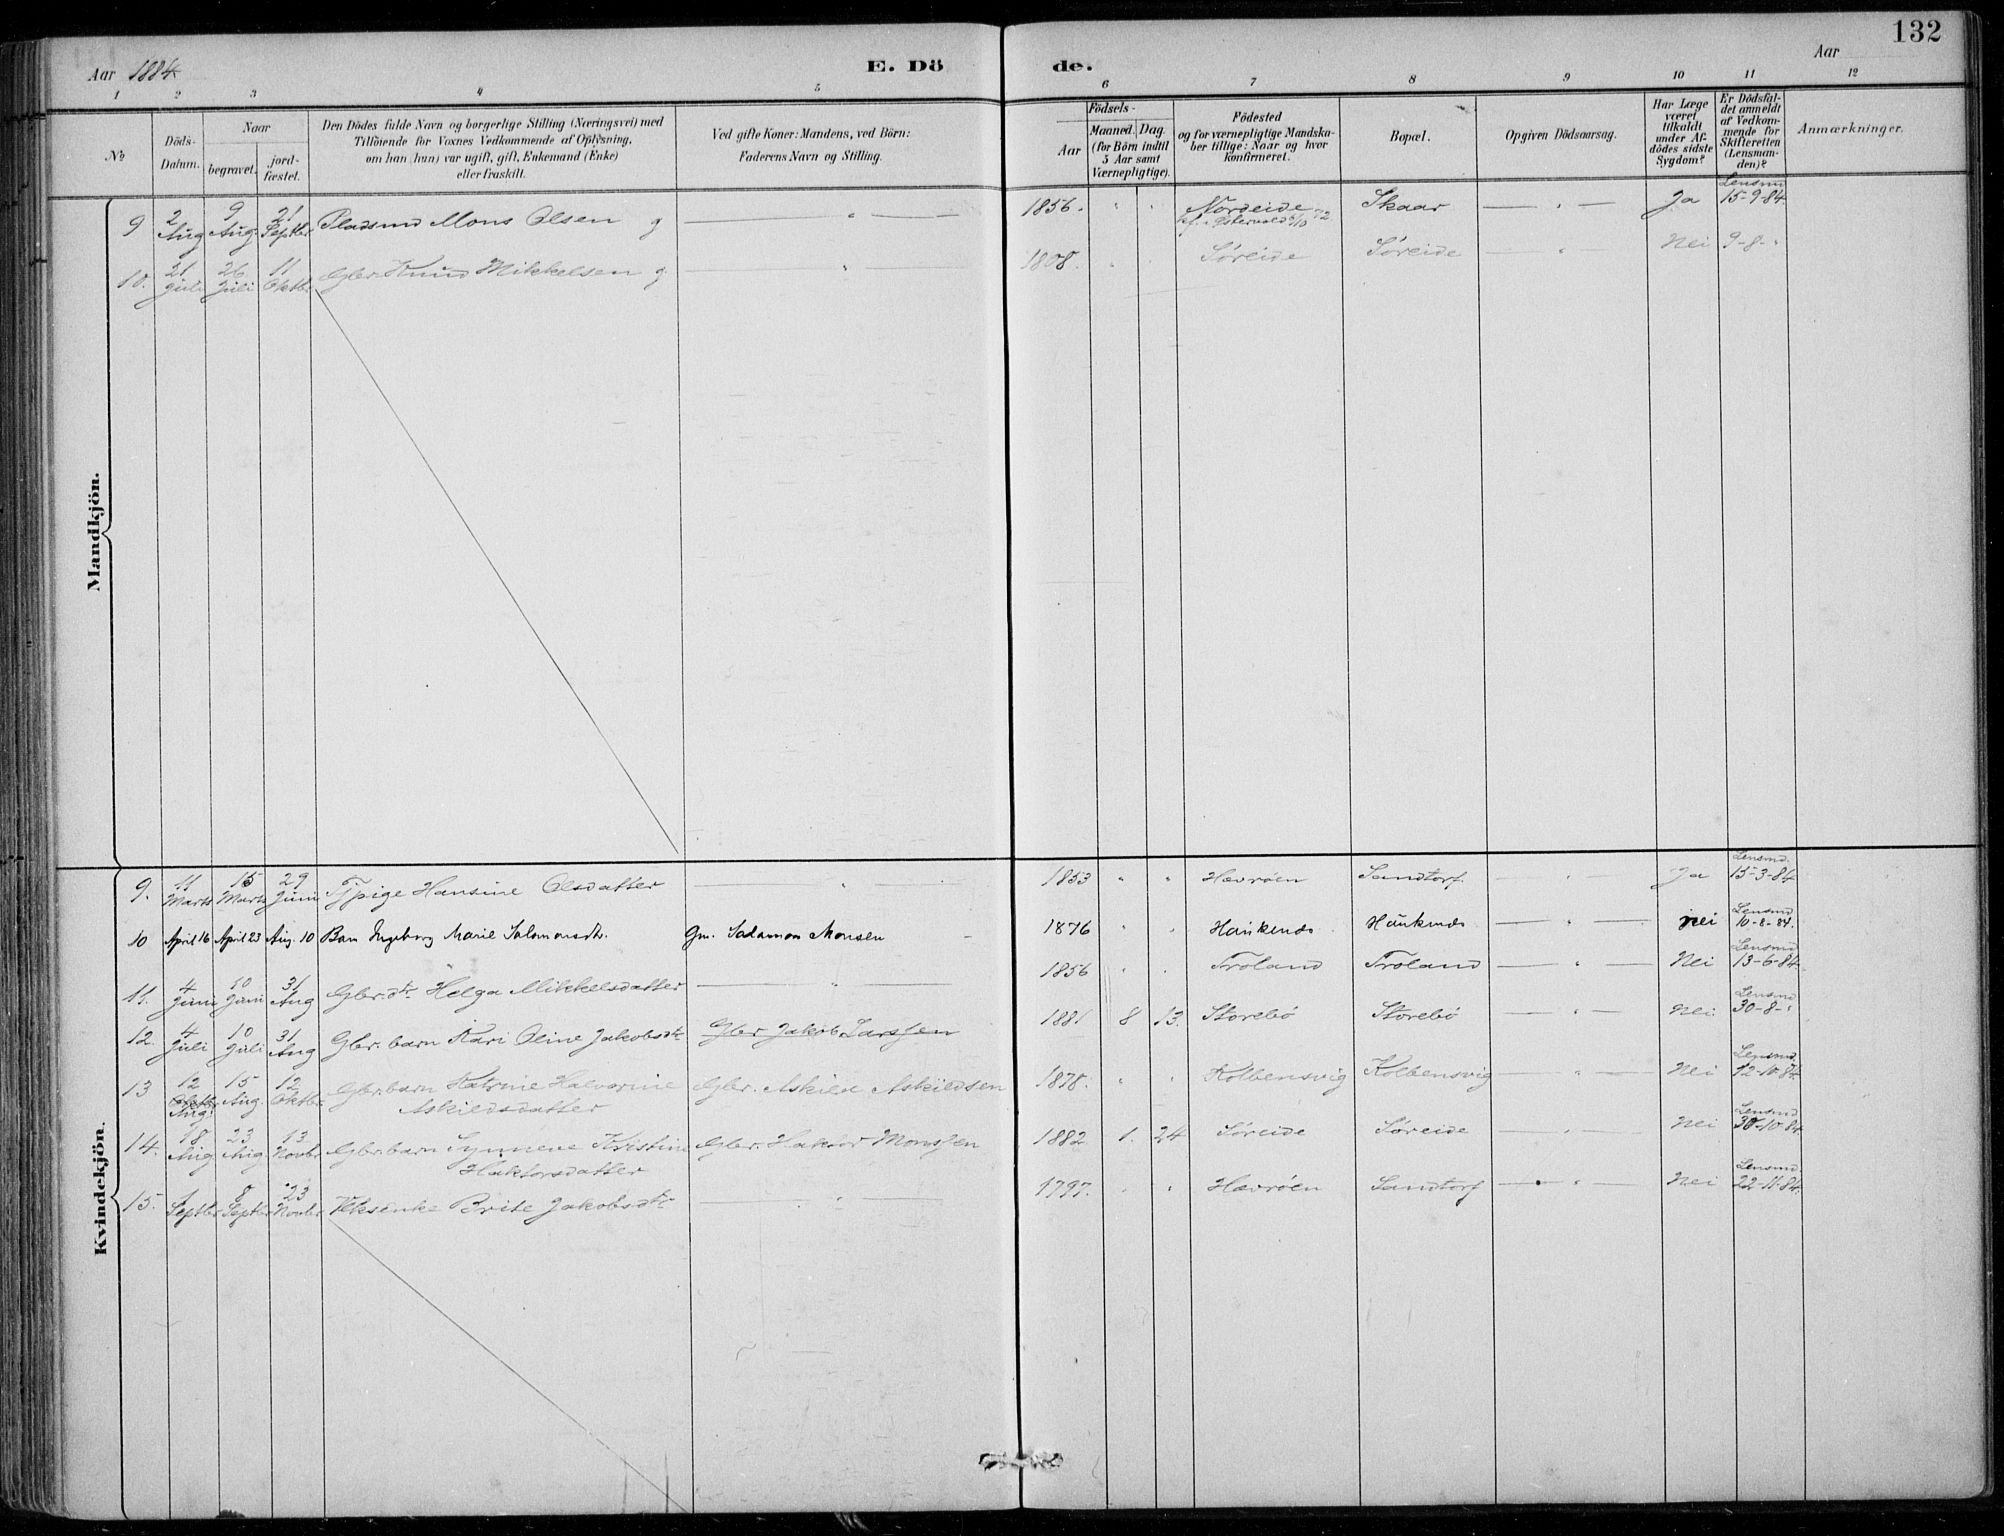 132
Aar 1884.
E. Dö de.
Aar
1 2 3 4 5 6 7 8 9 10 11 12
№
Döds-Datum.
Naar
begravet.
jord-fæstet.
Den Dödes fulde Navn og borgerlige Stilling (Næringsvei) med
Tilföiende for Voxnes Vedkommende af Oplysning,
om han (hun) var ugift, gift, Enkemand (Enke)
eller fraskilt.
Ved gifte Koner: Mandens, ved Börn:
Faderens Navn og Stilling.
Födsels-
Aar
Maaned. Dag.
(for Börn indtil
5 Aar samt
Værnepligtige).
Födested
og for værnepligtige Mandska-
ber tillige: Naar og hvor
konfirmeret.
Bopæl.
Opgiven Dödsaarsag.
Har Læge
været
tilkaldt
under Af-
dödes sidste
Sygdom?
Er Dödsfal-
det anmeldt
af Vedkom-
mende for
Skifteretten
(Lensman-
den)?
Anmærkninger.
Mandkjön.
9 2 Aug 9 Aug. 21 Septbr Pladsmd Mons Olsen g — " — 1856. " " Nordeide Skaar — " — Ja Lensmd 15-9-84
kf. i Østervold 6/10 72
10. 21 Juli 26 Juli 11 Oktbr Gbr. Knud Mikkelsen g — " — 1808. " " Søreide Søreide — " — Nei 9-8-"
Kvindekjön.
9. 11 Marts 15 Marts 29 Juni Tjpige Hansine Olsdatter — " — 1853 " " Hævrøen Sandtorf — " — Ja Lensmd. 15-3-84
10 April 16 April 23 Aug. 10 Barn Ingeborg Marie Salamonsdtr. Gm. Salamon Monsen 1876 " " Haukenæs Haukenæs — " — nei Lensmd 10-8-84.
11. 4 Juni 10 Juni 31 Aug Gbr. dtr. Helga Mikkelsdatter — " — 1856 " " Troland Troland — " — Nei Lensmd 13-6-84.
12. 4 Juli 10 Juli 31 Aug Gbr. barn Kari Oline Jakobsdtr Gbr. Jakob Larssen 1881 8 13. Storebø Storebø — " — Nei Lensmd 30-8-"
13 12 Oktbr Aug. 15 Aug. 12 Oktbr. Gbr. barn Katrine Halvorine Gbr. Askild Askildsen 1878. " " Kolbensvig Kolbensvig — " — Nei Lensmd. 12-10-84.
Askildsdatter
14. 18 Aug 23 Aug 13 Novbr Gbr. barn Synneve Kristine Gbr. Haktor Monssen 1882 1. 24 Søreide Søreide — " — Nei Lensmd 30-10-84
Haktorsdatter
15. 1 Septbr 8 Septbr 23 Novbr. Brite Jakobsdtr — " — 1797. " " Hævrøen Sandtorf — " — Nei Lensmd. 22-11-84.